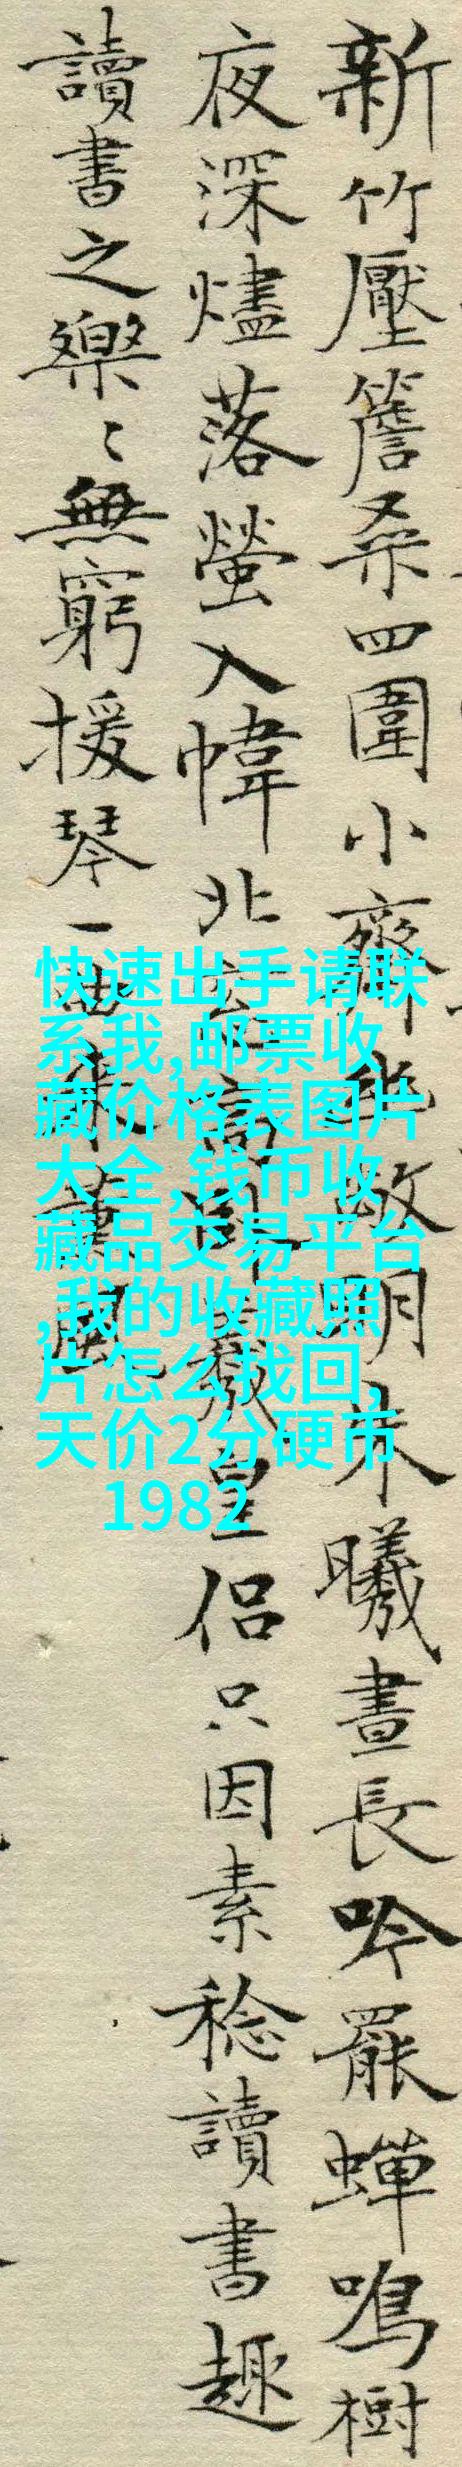 新竹壓簷桑四圍小齋幽敞明朱曦晝長吟罷蟬鳴樹
夜深燼落螢入幃北窗高臥羲皇侶只因素稔讀書趣
讀書之樂〻無窮援琴一曲來薰風
快速出手请联
系我,邮票收
藏价格表图片
大全,钱币收
藏品交易平台
,我的收藏照
片怎么找回,
天价2分硬币
1982